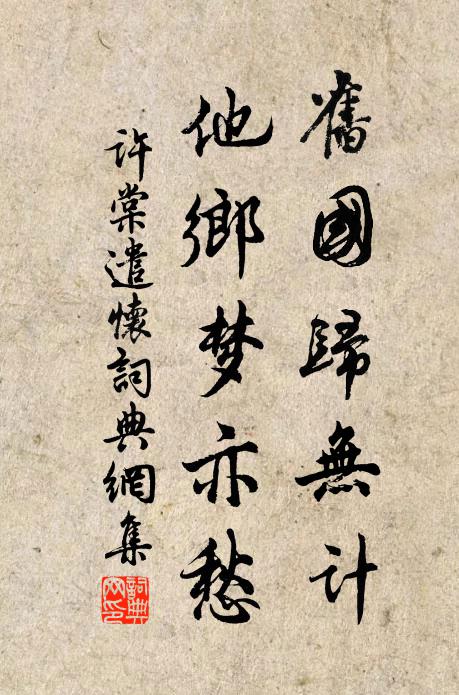 舊國歸無計
他鄉梦亦愁
許棠遣懷詞典網集
詞典
网印